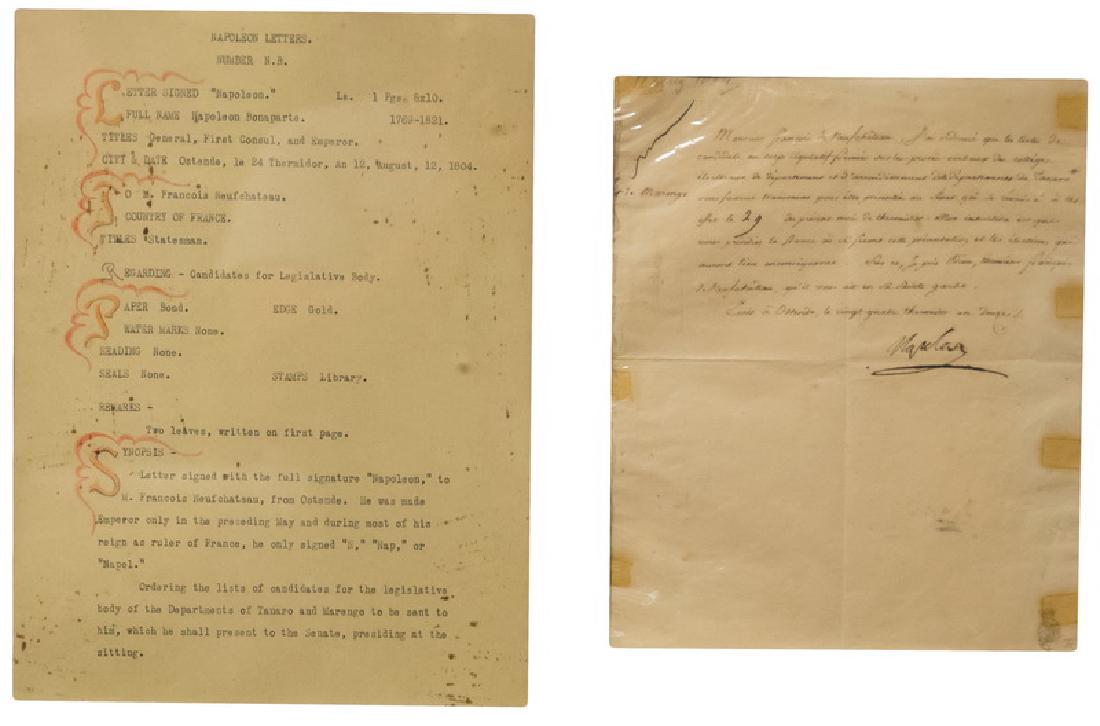 NAPOLEON LETTERS.
NUMBER N.B.
LETTER SIGNED "Napoleon." Ls. 1 Pge. 8x10.
FULL NAME Napoleon Bonaparte. 1769-1821.
TITLES General, First Consul, and Emperor.
CITY & DATE Ostende, le 24 Thermidor, An 12, August, 12, 1804.
TO M. Francois Neufchateau.
COUNTRY OF FRANCE.
TITLES Statesman.
REGARDING - Candidates for Legislative Body.
PAPER Bond. EDGE Gold.
WATER MARKS None.
HEADING None.
SEALS None. STAMPS Library.
REMARKS -
Two leaves, written on first page.
SYNOPSIS -
Letter signed with the full signature "Napoleon," to
M. Francois Neufchateau, from Ostende. He was made
Emperor only in the preceding May and during most of his
reign as ruler of France, he only signed "N," "Nap," or
"Napol."
Ordering the lists of candidates for the legislative
body of the Departments of Tanaro and Marengo to be sent to
him, which he shall present to the Senate, presiding at the
sitting.
Monsieur françois de Neufchâteau. J'ai ordonné que la liste de
candidats au corps législatif formée sur les procès verbaux des collèges
électoraux de département et d'arrondissement des départemens du Tanaro
& de Marengo vous fussent transmises pour être présentées au Sénat
effet le 29 du présent mois de thermidor. Mon intention est que
vous présidiez le Sénat où se feront cette présentation et les élections qui
auront lieu en conséquence. Sur ce, Je prie Dieu, Monsieur françois
de Neufchâteau, qu'il vous ait en sa Sainte garde.
Ecrit à Ostende, le vingt quatre thermidor an douze.
Napoleon